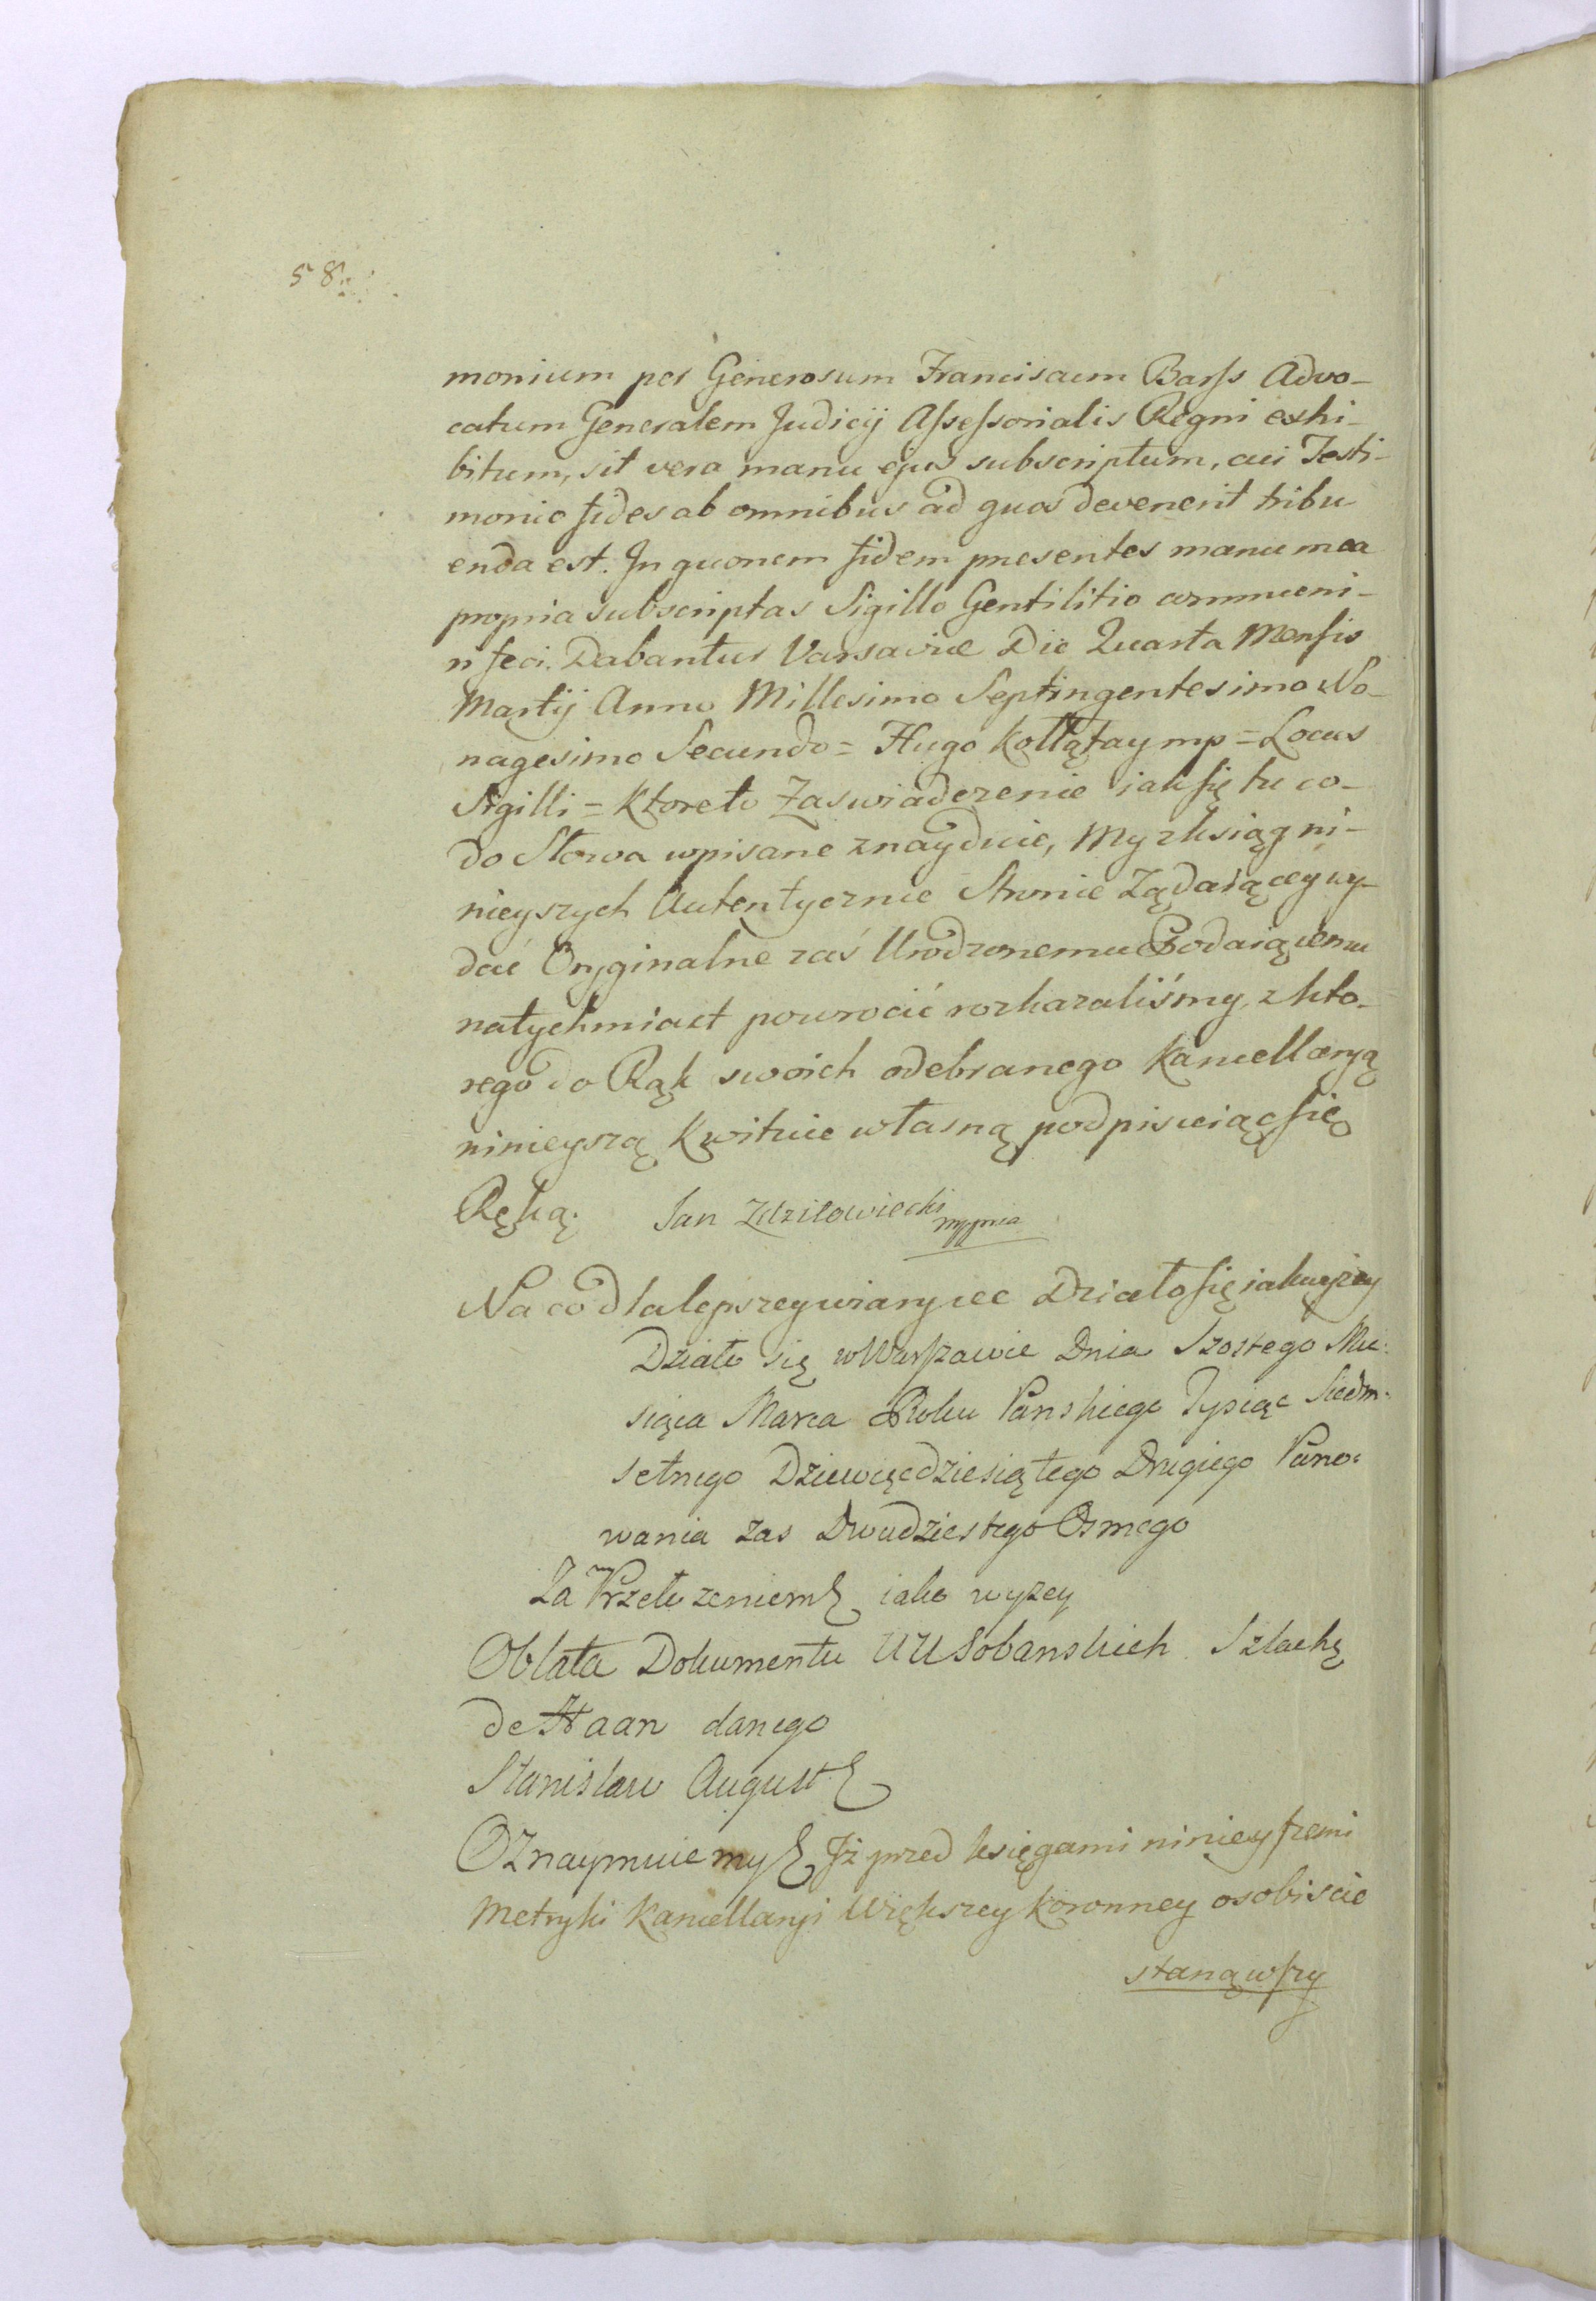 58.
monium per Generosum Franciscum Barſs Advo-
catum Generalem Judicij Aſseſsorialis Regni exhi-
bitum, sit vera manu ejus subscriptum, cui Testi-
monio fides ab omnibus ad quos devenerit tribu
enda est. In quorum fidem presentes manu mea
propria subscriptas Sigillo Gentilitio communi-
ri feci. Dabantur Varsaviæ Die Quarta Menſis
Martij Anno Millesimo Septingentesimo No-
nagesimo Secundo = Hugo Kołłątay mp = Locus
Sigilli = Ktoreto Zaswiadczenie iak się tu co-
do Słowa wpisane znayduie, My z ksiąg ni-
nieyszych Autentycznie Stronie Żądaiącey wy-
dać Oryginalne zaś Urodzonemu Podaiącemu
natychmiast powrocić rozkazaliśmy, z kto-
rego do Rąk swoich odebranego Kancellaryą
ninieyszą kwituie własną podpisuiąc się
Ręką. Jan Zdziłowiecki mppria
Na co dla lepszey wiary ucc Działo się iak wyżey
Działo się w Warſzawie Dnia Szostego Mie-
siąca Marca Roku Panskiego Tysiąc Siedm-
setnego Dziewięcdziesiątego Drugiego Pano-
wania zas Dwudziestego Osmego
Za Przełozeniem iako wyzey
Oblata Dokumentu UU Sobanskich Szlachę
de Haan danego
Stanisław August
Oznaymuiemy Iż przed księgami ninieyſzemi
Metryki Kancellaryi Większey Koronney osobiscie
stanąwſzy